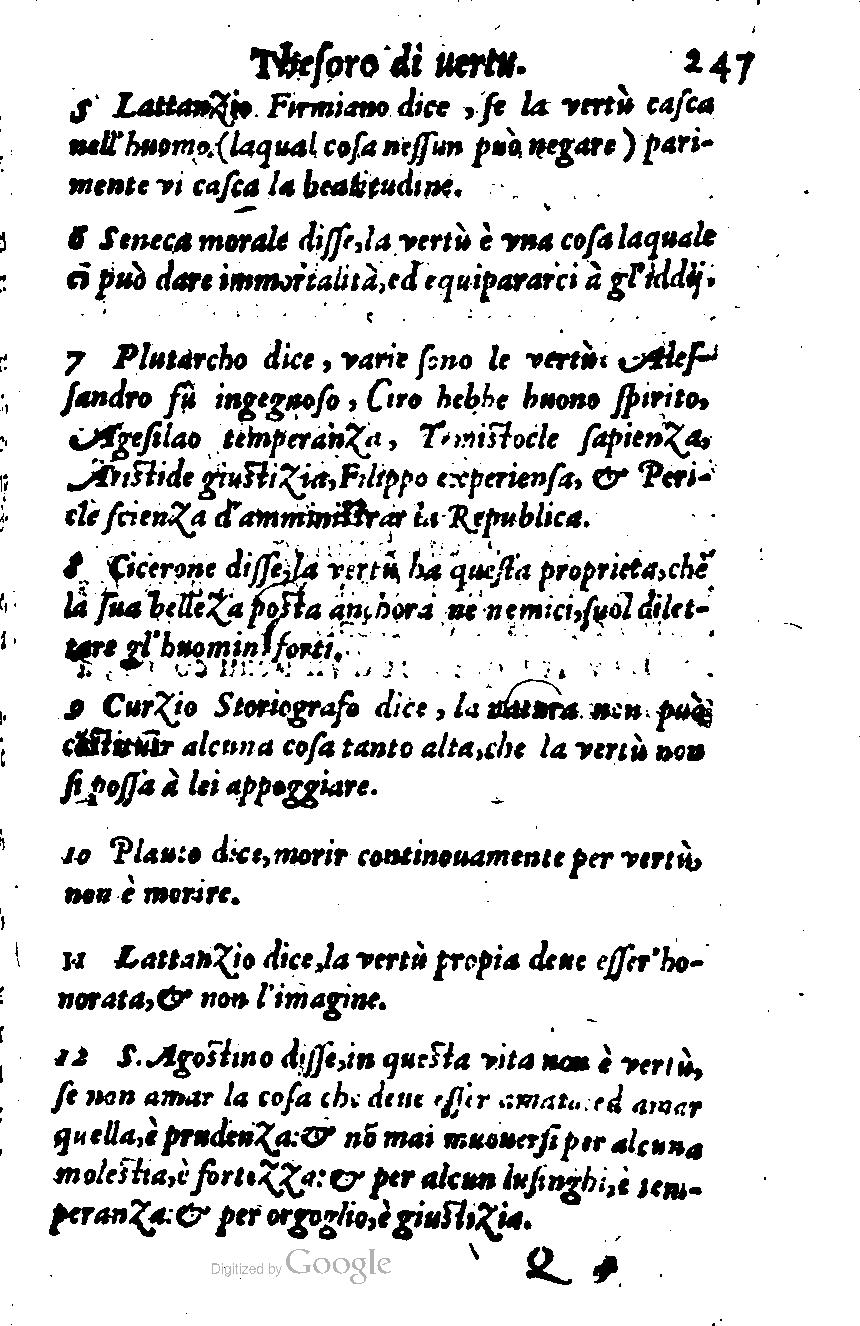 Thesoro di uertu. 247
5 Lattanzio Firmiano dice, se la vertù casca
nell'huomo,(laqual cosa nessun può negare) pari-
mente vi casca la beatitudine.
6 Seneca morale disse,la vertù è vna cosa laquale
ci può dare immortalità,ed equipararci à gl'iddij.
7 Plutarcho dice, varie sono le vertù: Ales-
sandro fù ingegnoso, Ciro hebbe buono spirito,
Agesilao temperanza, Temistocle sapienza,
Aristide giustizia,Filippo experiensa, & Peri-
cle scienza d'amministrar la Republica.
8 Cicerone disse,la vertù ha questa proprieta,che
la sua belleza posta anchora ne nemici,suol dilet-
tare gl'huomini forti.
9 Curzio Storiografo dice, la natura non può
constituir alcuna cosa tanto alta,che la vertù non
si possa à lei appoggiare.
10 Plauto dice,morir continouamente per vertù,
non è morire.
11 Lattanzio dice,la vertù propia deue esser'ho-
norata,& non l'imagine.
12 S. Agostino disse,in questa vita non è vertù,
se non amar la cosa che deue esser amata:ed amar
quella,è prudenza:& nõ mai muouersi per alcuna
molestia,è fortezza:& per alcun lusinghi,è tem-
peranza:& per orgoglio,è giustizia.
Q
Digitized by Google